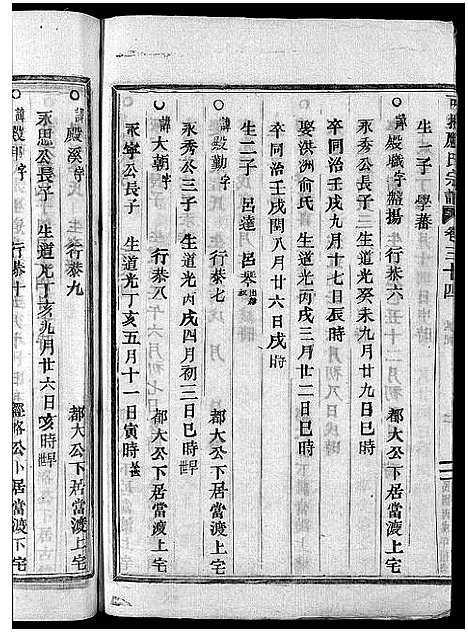 嚴氏宗譜 卷三十四
生一子 學蕃
諱殿颺字盤揚 行恭六 都大公下居當渡上宅
永秀公長子 生道光癸未九月廿九日辰時
卒同治壬戌九月十七日辰時
娶洪洲俞氏 生道光丙戌三月廿二日巳時
卒同治壬戌閏八月廿六日戌時
生二子 呂達 呂皋
諱殿勤字 行恭七 都大公下居當渡上宅
永秀公三子 生道光丙戌四月初三日巳時
諱大朝字 行恭八 都大公下居當渡上宅
永寧公長子 生道光丁亥五月十一日寅時
諱殿溪字 行恭九 都大公下居當渡上宅
永思公長子 生道光丁亥九月廿六日亥時
行恭十